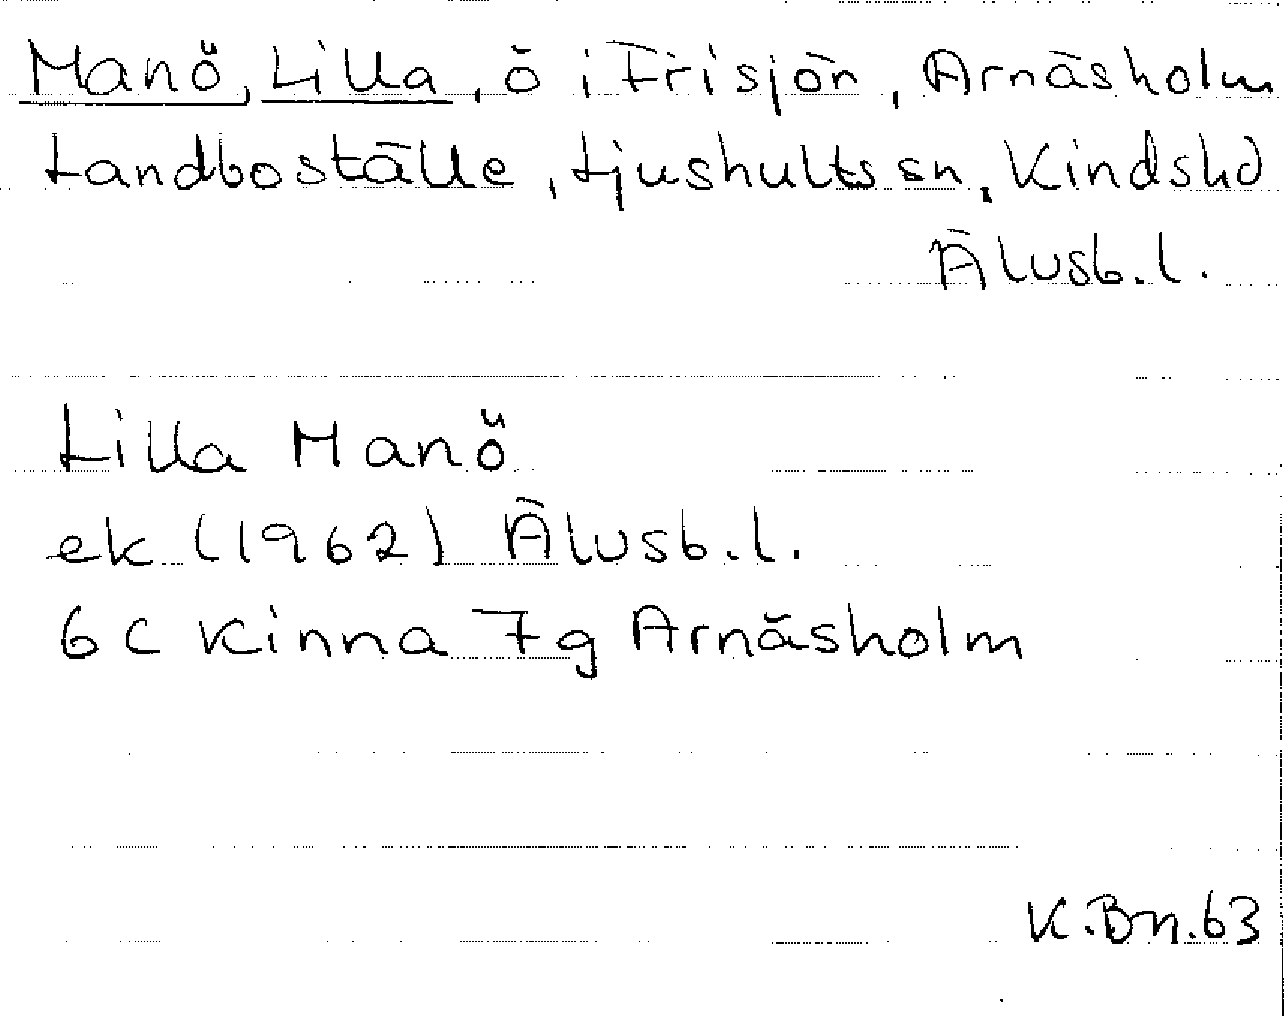 Manö, Lilla, ö i Frisjön, Arnäsholm
Landboställe, Ljushults sn, Kinds hd
Älvsb. l.
Lilla Manö
ek (1962) Älvsb. l.
6 C Kinna 7g Arnäsholm
K.Bn.63